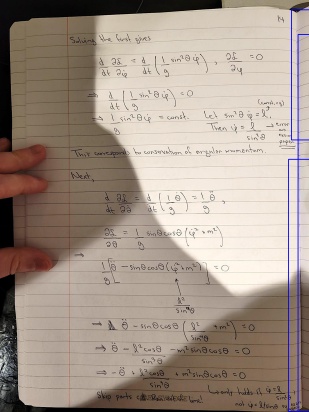 14
Solving the first gives
d/dt ∂L/∂φ̇ = d/dt (1/g sin²θ φ̇), ∂L/∂φ = 0
⇒ d/dt (1/g sin²θ φ̇) = 0
⇒ 1/g sin²θ φ̇ = const. Let sin²θ φ̇ = l.
Then φ̇ = l/sin²θ → Error
This corresponds to conservation of angular momentum.
Next,
d/dt ∂L/∂θ̇ = d/dt (1/g θ̇) = 1/g θ̈,
∂L/∂θ = 1/g sinθcosθ (φ̇² + m²)
⇒
1/g [θ̈ - sinθcosθ (φ̇² + m²)] = 0
l²/sin⁴θ
⇒ θ̈ - sinθcosθ (l²/sin⁴θ + m²) = 0
⇒ θ̈ - l²cosθ/sin³θ - m²sinθcosθ = 0
⇒ -θ̈ + l²cosθ/sin³θ + m²sinθcosθ = 0
only holds if φ̇ = l/sin²θ
not φ̇ =